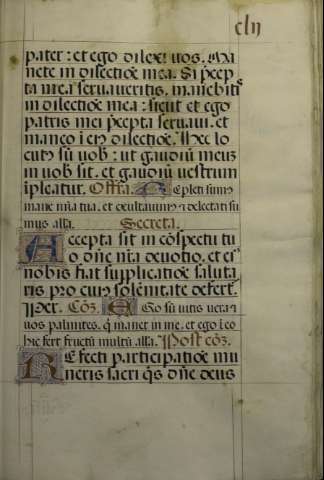 clij
pater: et ego dilexi vos. Ma
nete in dilectiõe mea. Si p̃cep
ta mea servaveritis, manebitis
in dilectiõe mea: sicut et ego
patris mei p̃cepta servavi. et
maneo ĩ eiꝰ dilectiõe. Hec lo
cutꝰ sũ vob̃: ut gaudiũ meũ
in vob̃ sit. et gaudiũ vestrum
ĩpleatur. Offa. Repleti sumꝰ
mane mĩa tua. et exultavimꝰ et delectati su
mus alla. Secreta.
Accepta sit in cõspectu tu
o dñe nr̃a devotio. et eiꝰ
nobis fiat supplicatiõe saluta
ris pro cuiꝰ solẽnitate defert.
Per. Cõ. Ego sũ vitis vera et
vos palmites. q̃ manet in me. et ego ĩ eo
hic fert fructũ multũ alla. Post cõ.
Refecti participatiõe mu
neris sacri q̃s dñe deus